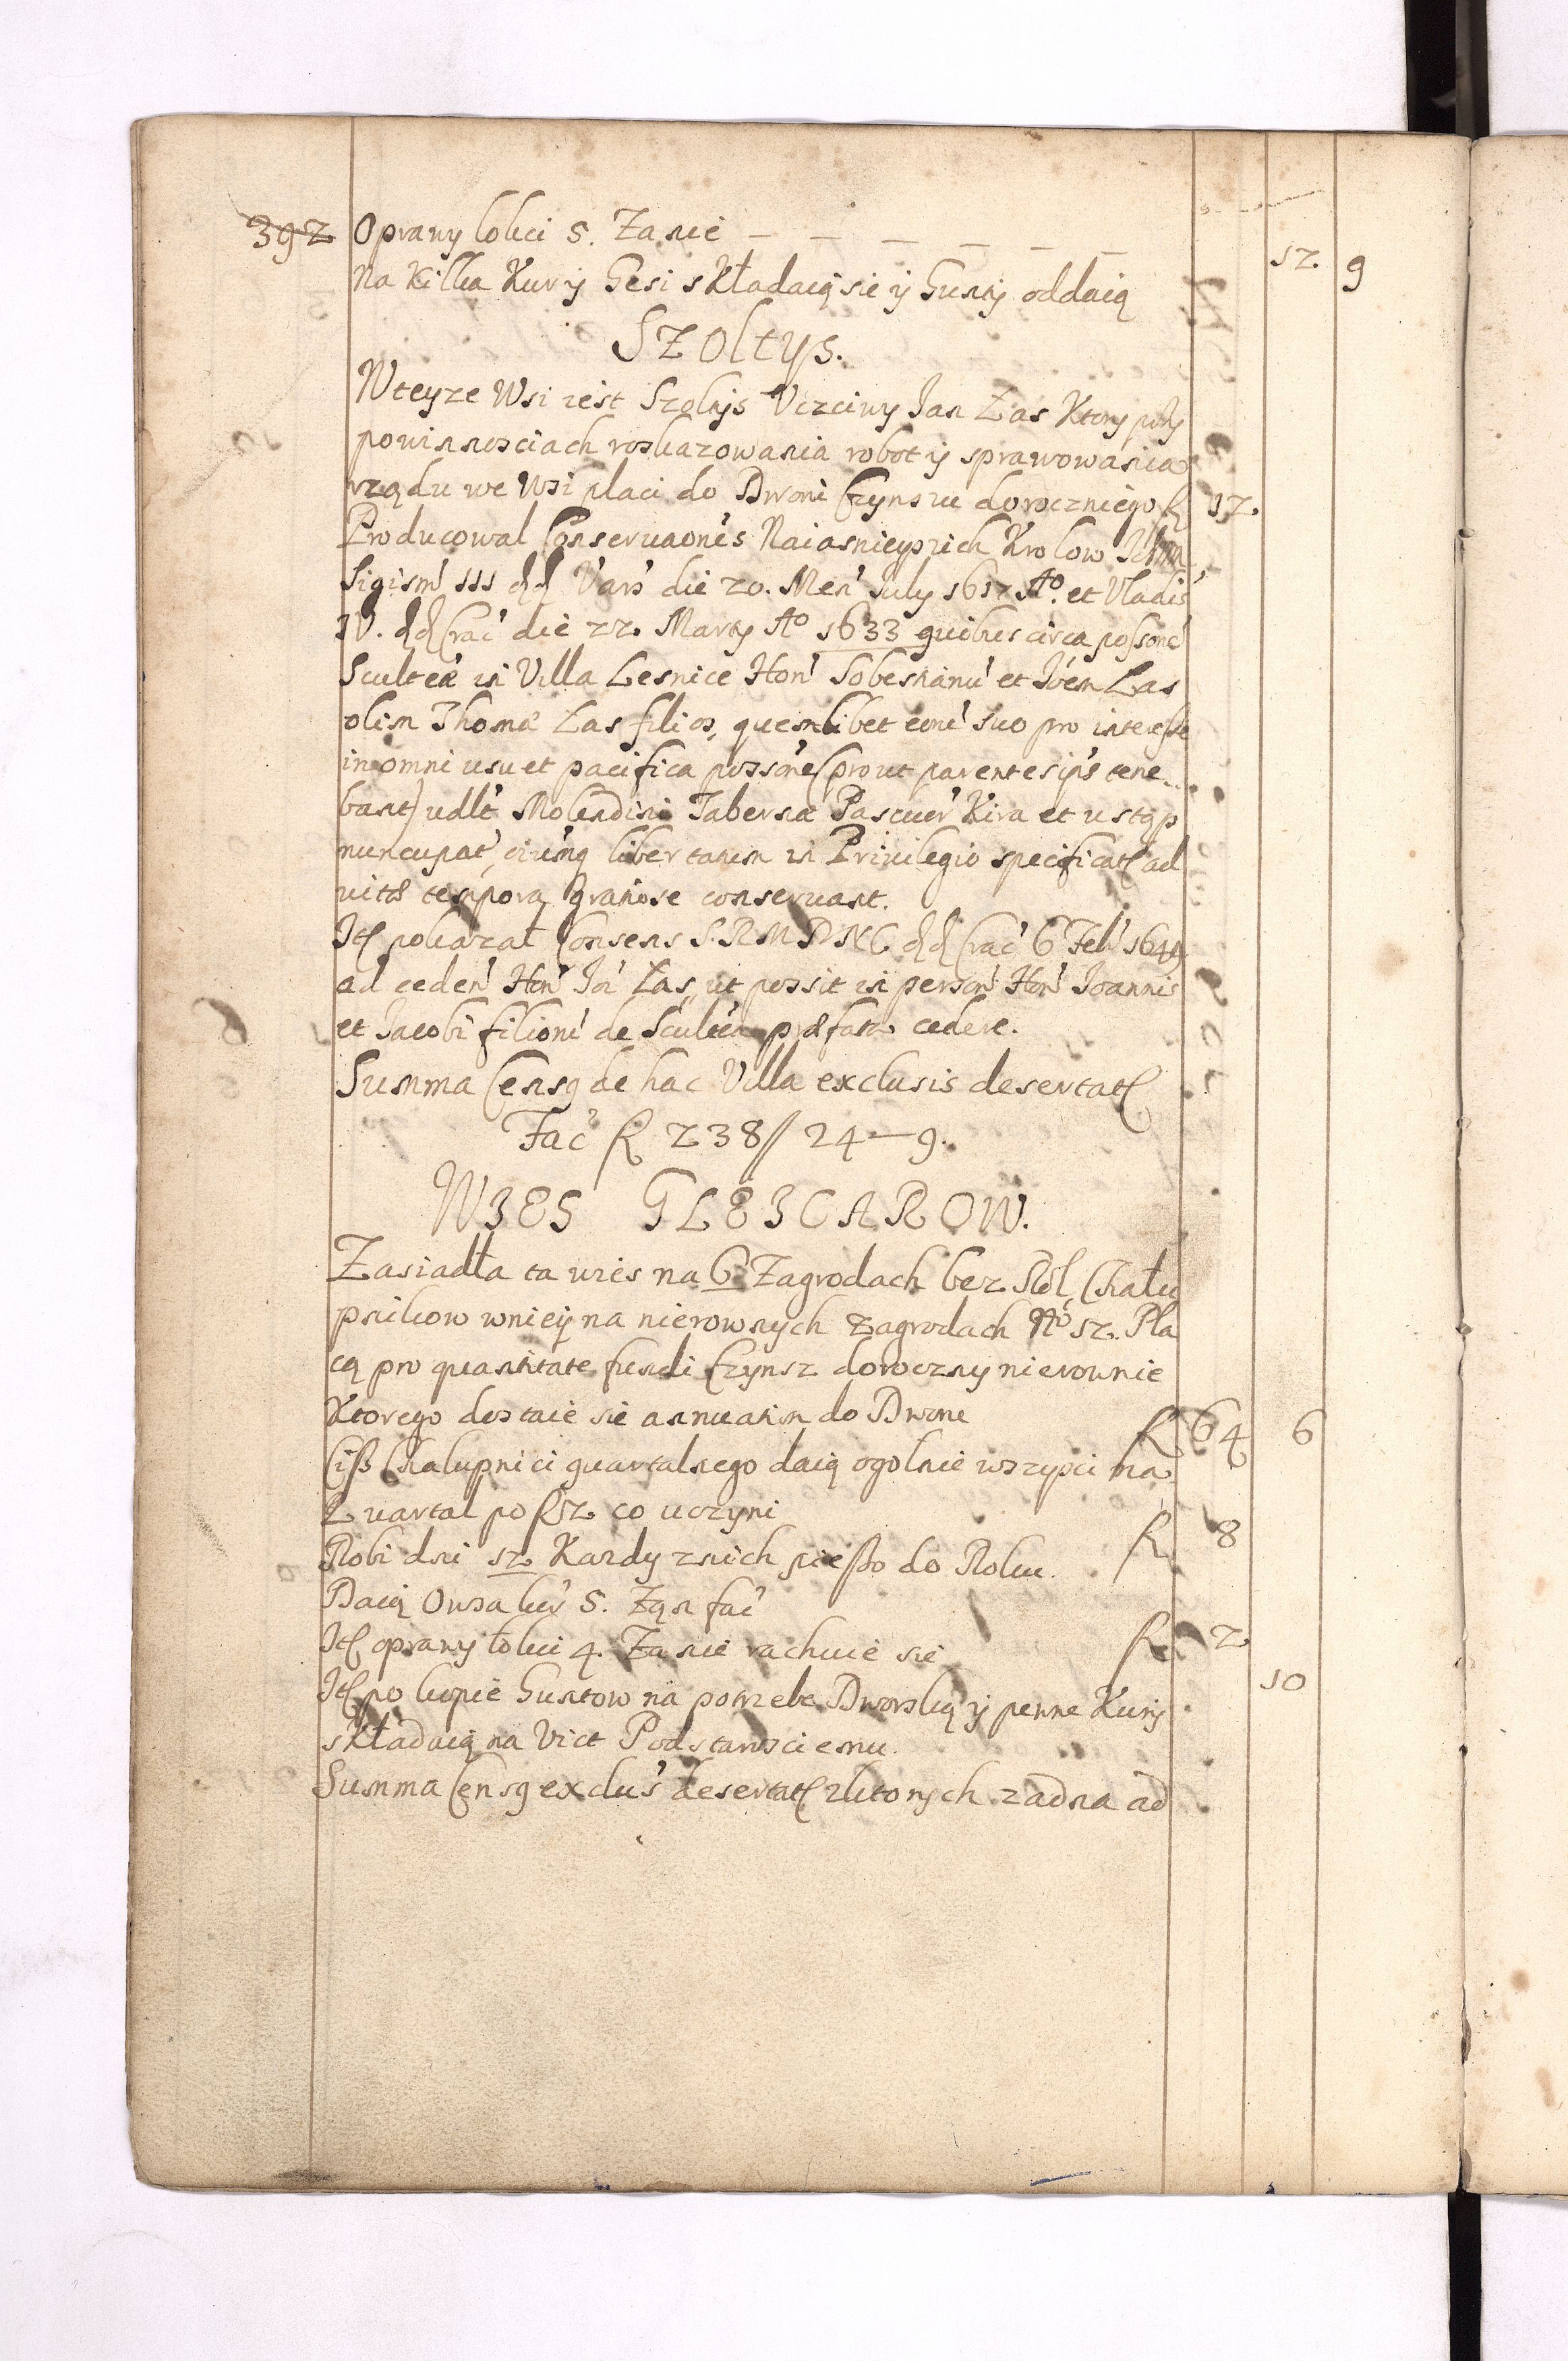 392 Oprawy łokci 5. Za nie — — — — — — 12. 9
Na Kilka Kur y Gesi składaią sie y Gunty oddaią
SZOltys.
W teyze Wsi iest Szoltys Vczciwy Jan Łas Ktory przy
powinnosciach roskazowania robot y sprawowania
vrzędu we Wsi placi do Dworu Czynszu dorocznego fl 12.
Producowal Conseruaones Naiasnieyszich Krolow
Sigism' III dd Vars' die 20. Men' July 1617 Ao. et Vladis'
IV. dd Crac' die 22. Marty Ao 1633 quibus circa possone'
Scultea' in Villa Lesnice Hon' Sobestianu' et Joem Las
olim Thoma Las filios, quemlibet eoru' suo pro interesse
in omni usu et pacifica possone (prout parentes ips' tene
bant) vdlt' Molendini Taberna Pascuor' Kira et ustęp
nuncupat', libertatum in Priuilegio specificat ad
vitæ tempora gratiose conseruant.
It pokazał Consens S. R M D N C dd Crac' 6 Feb' 1649
ad ceden' Hon' Jo' Łas, ut possit in person' Hon' Joannis
et Jacobi filioru' de Scultea præfata cedere.
Summa Censq de hac Villa exclusis desertat
Fac' fl 238 // 24 — 9.
WIES GLEICAROW.
Zasiadła ta wies na 6 Zagrodach bez Rol, Chału
pnikow w niey na nierownych Zagrodach No 12. Pła
cą pro quantitate fundi Czynsz doroczny nierownie
Ktorego dostaie sie annuatim do Dworu fl 64 6
Ciß Chalupnici quartalnego daią ogolnie wszyscy na
Quartal po fl 2 co uczyni fl 8
Robi dni 12 Kazdy z nich pießo do Roku.
Daią Owsa kor' 5. Zą fac' fl 2
It oprawy łokci 4. Za nie rachuie sie 10
It po kopie Guntow na potrzebe Dworską y pewne Kury
składaią na Vict Podstarosciemu.
Summa Censq exclus' desertat z ktorych zadna ad